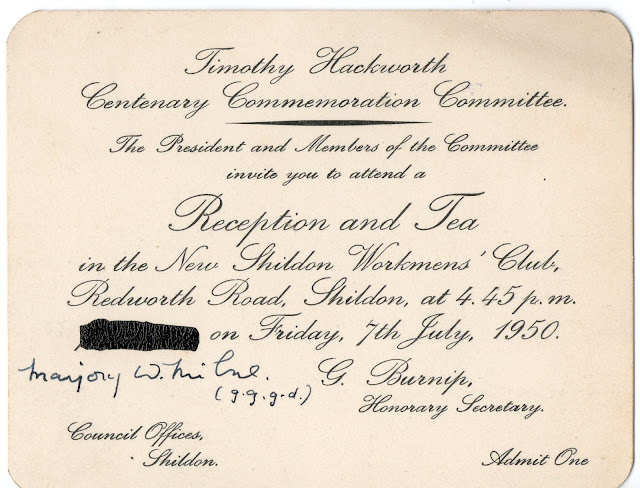 Timothy Hackworth
Centenary Commemoration Committee.
The President and Members of the Committee
invite you to attend a
Reception and Tea
in the New Shildon Workmens' Club,
Redworth Road, Shildon, at 4.45 p.m.
on Friday, 7th July, 1950.
Marjory W. Milne.
(g.g.g.d.)
G. Burnip,
Honorary Secretary.
Council Offices,
Shildon.
Admit One